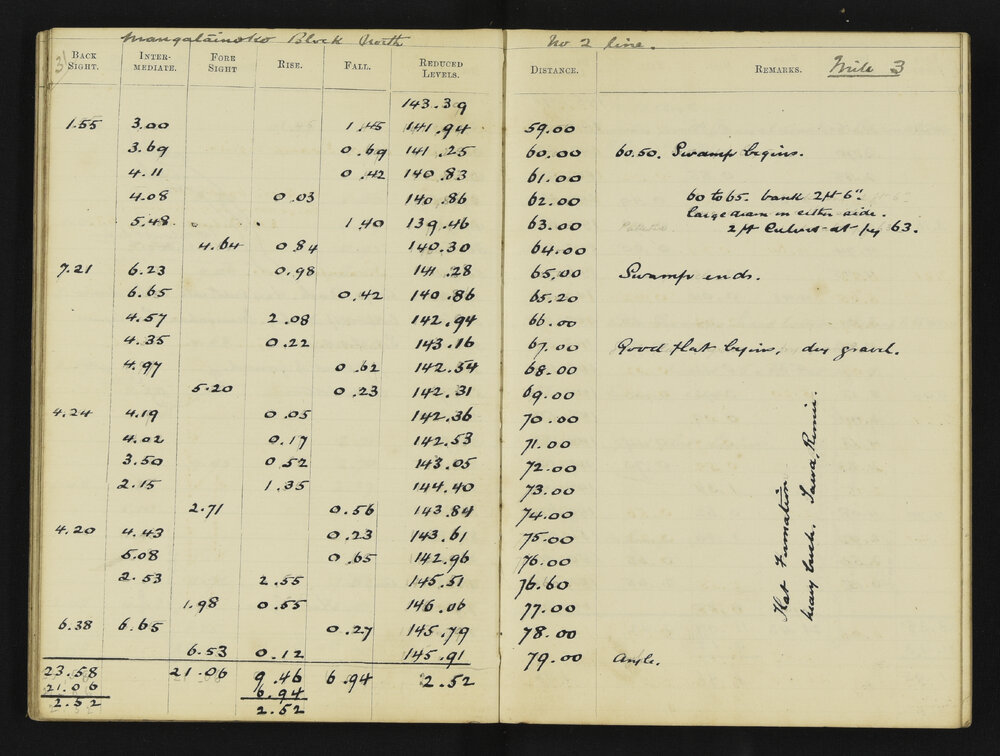 Mangatainoko Block North No 2 line.
3 BACK SIGHT. INTERMEDIATE. FORE SIGHT RISE. FALL. REDUCED LEVELS. DISTANCE. REMARKS. Mile 3
143.39
1.55 3.00 1.45 141.94 59.00
3.69 0.69 141.25 60.00 60.50. Swamp begins.
4.11 0.42 140.83 61.00
4.08 0.03 140.86 62.00 60 to 65. bank 2ft 6"
large drain on either side.
5.48 1.40 139.46 63.00 2ft Culvert at peg 63.
4.64 0.84 140.30 64.00
7.21 6.23 0.98 141.28 65.00 Swamp ends.
6.65 0.42 140.86 65.20
4.57 2.08 142.94 66.00
4.35 0.22 143.16 67.00 Good flat begins, dry gravel.
4.97 0.62 142.54 68.00
5.20 0.23 142.31 69.00
4.24 4.19 0.05 142.36 70.00
4.02 0.17 142.53 71.00
3.50 0.52 143.05 72.00
2.15 1.35 144.40 73.00
2.71 0.56 143.84 74.00
4.20 4.43 0.23 143.61 75.00
5.08 0.65 142.96 76.00
2.53 2.55 145.51 76.60
1.98 0.55 146.06 77.00
6.38 6.65 0.27 145.79 78.00
6.53 0.12 145.91 79.00 Angle.
23.58 21.06 9.46 6.94 2.52
21.06 6.94
2.52 2.52
Flat Formation
heavy bush. Tawa, Rimu.